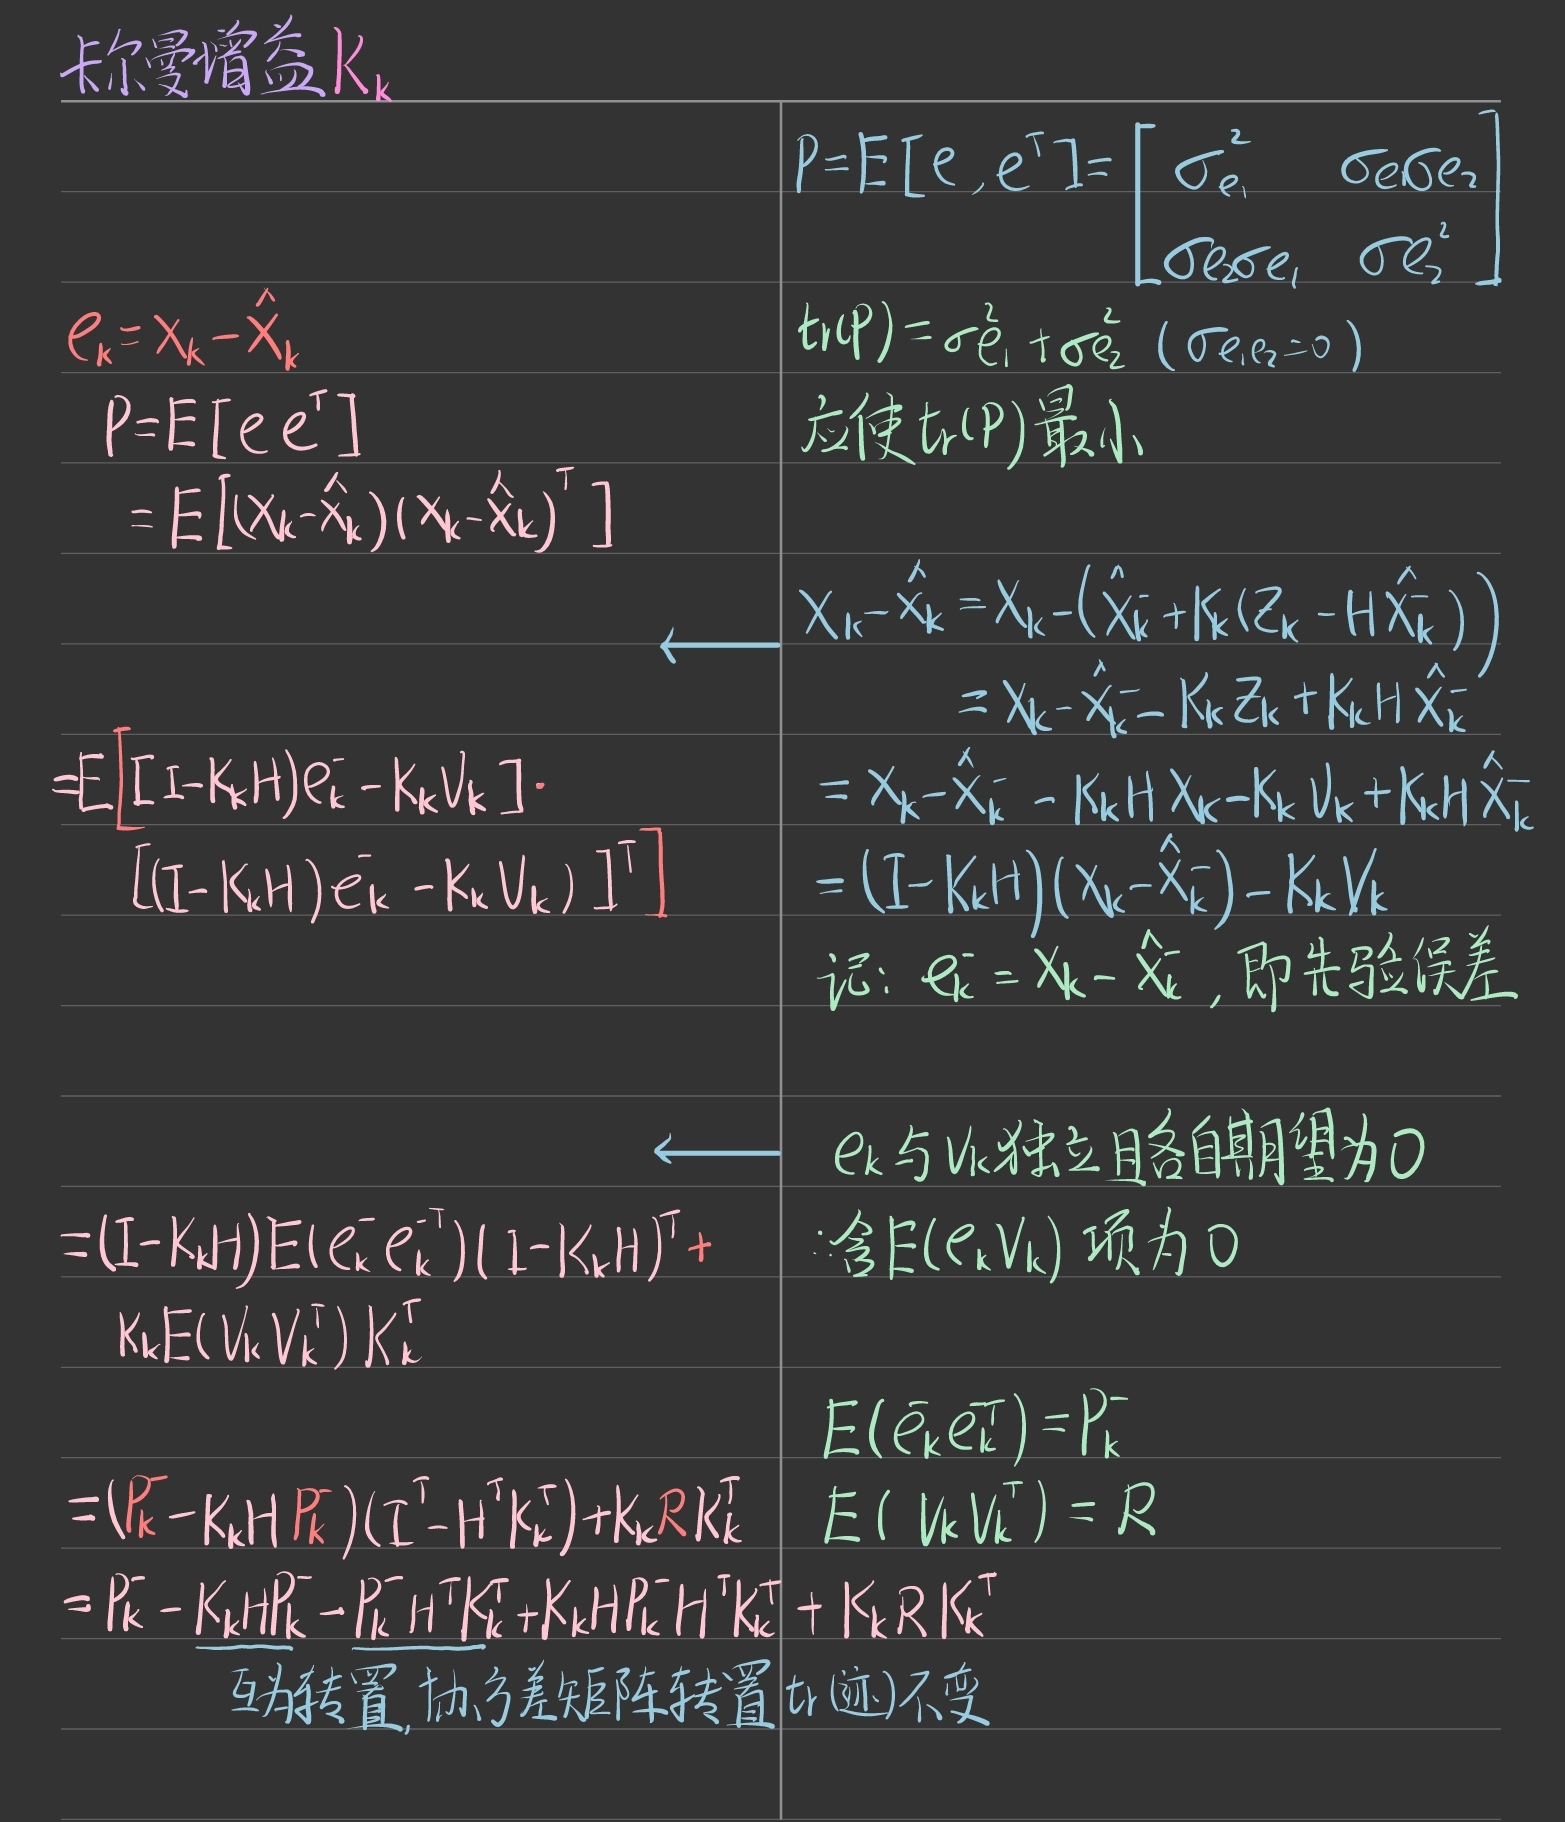 卡尔曼增益 K_k
P=E[e,e^T]=[σ_{e₁}² σe₁σe₂
σe₂σe₁ σe₂²]
e_k=x_k-x̂_k
tr(P)=σe₁²+σe₂² (σe₁e₂=0)
P=E[e e^T]
应使tr(P)最小
=E[(x_k-x̂_k)(x_k-x̂_k)^T]
x_k-x̂_k=x_k-(x̂_k^-+K_k(Z_k-Hx̂_k^-))
=x_k-x̂_k^- -K_kZ_k+K_kHx̂_k^-
=E[[I-K_kH)e_k^- -K_kV_k]·
=x_k-x̂_k^- -K_kHx_k-K_kV_k+K_kHx̂_k^-
[(I-K_kH)e_k^- -K_kV_k)]^T]
=(I-K_kH)(x_k-x̂_k^-)-K_kV_k
记: e_k^-=x_k-x̂_k^-,即先验误差
e_k与V_k独立且各自期望为0
=(I-K_kH)E(e_k^- e_k^{-T})(I-K_kH)^T+
∴含E(e_kV_k)项为0
K_kE(V_kV_k^T)K_k^T
E(e_k^- e_k^{-T})=P_k^-
=(P_k^- -K_kHP_k^-)(I^T-H^TK_k^T)+K_kRK_k^T
E(V_kV_k^T)=R
=P_k^- -K_kHP_k^- -P_k^-H^TK_k^T+K_kHP_k^-H^TK_k^T+K_kRK_k^T
互为转置,协方差矩阵转置tr(迹)不变